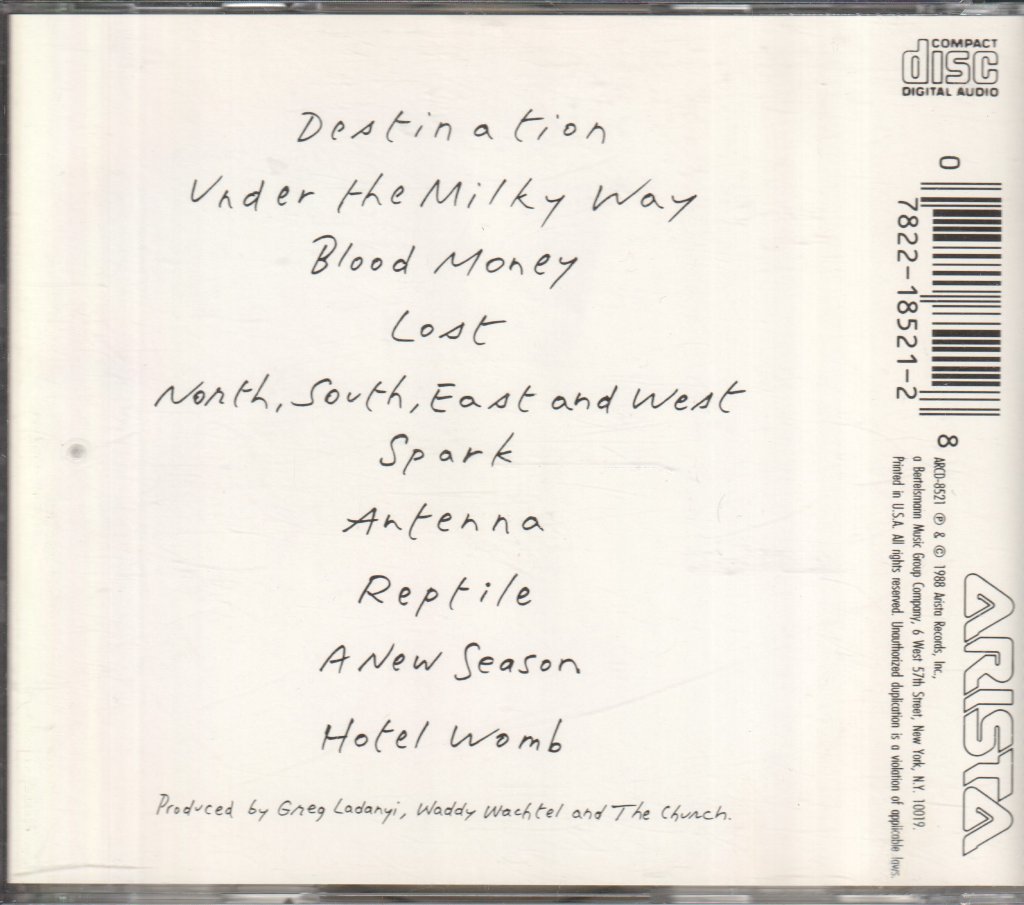 Destination
Under the Milky Way
Blood Money
Lost
North, South, East and West
Spark
Antenna
Reptile
A New Season
Hotel Womb
Produced by Greg Ladanyi, Waddy Wachtel and The Church.
COMPACT
disc
DIGITAL AUDIO
0
7822-18521-2
8
ARCD-8521 ℗ & © 1988 Arista Records, Inc.,
a Bertelsmann Music Group Company, 6 West 57th Street, New York, N.Y. 10019.
Printed in U.S.A. All rights reserved. Unauthorized duplication is a violation of applicable laws.
ARISTA